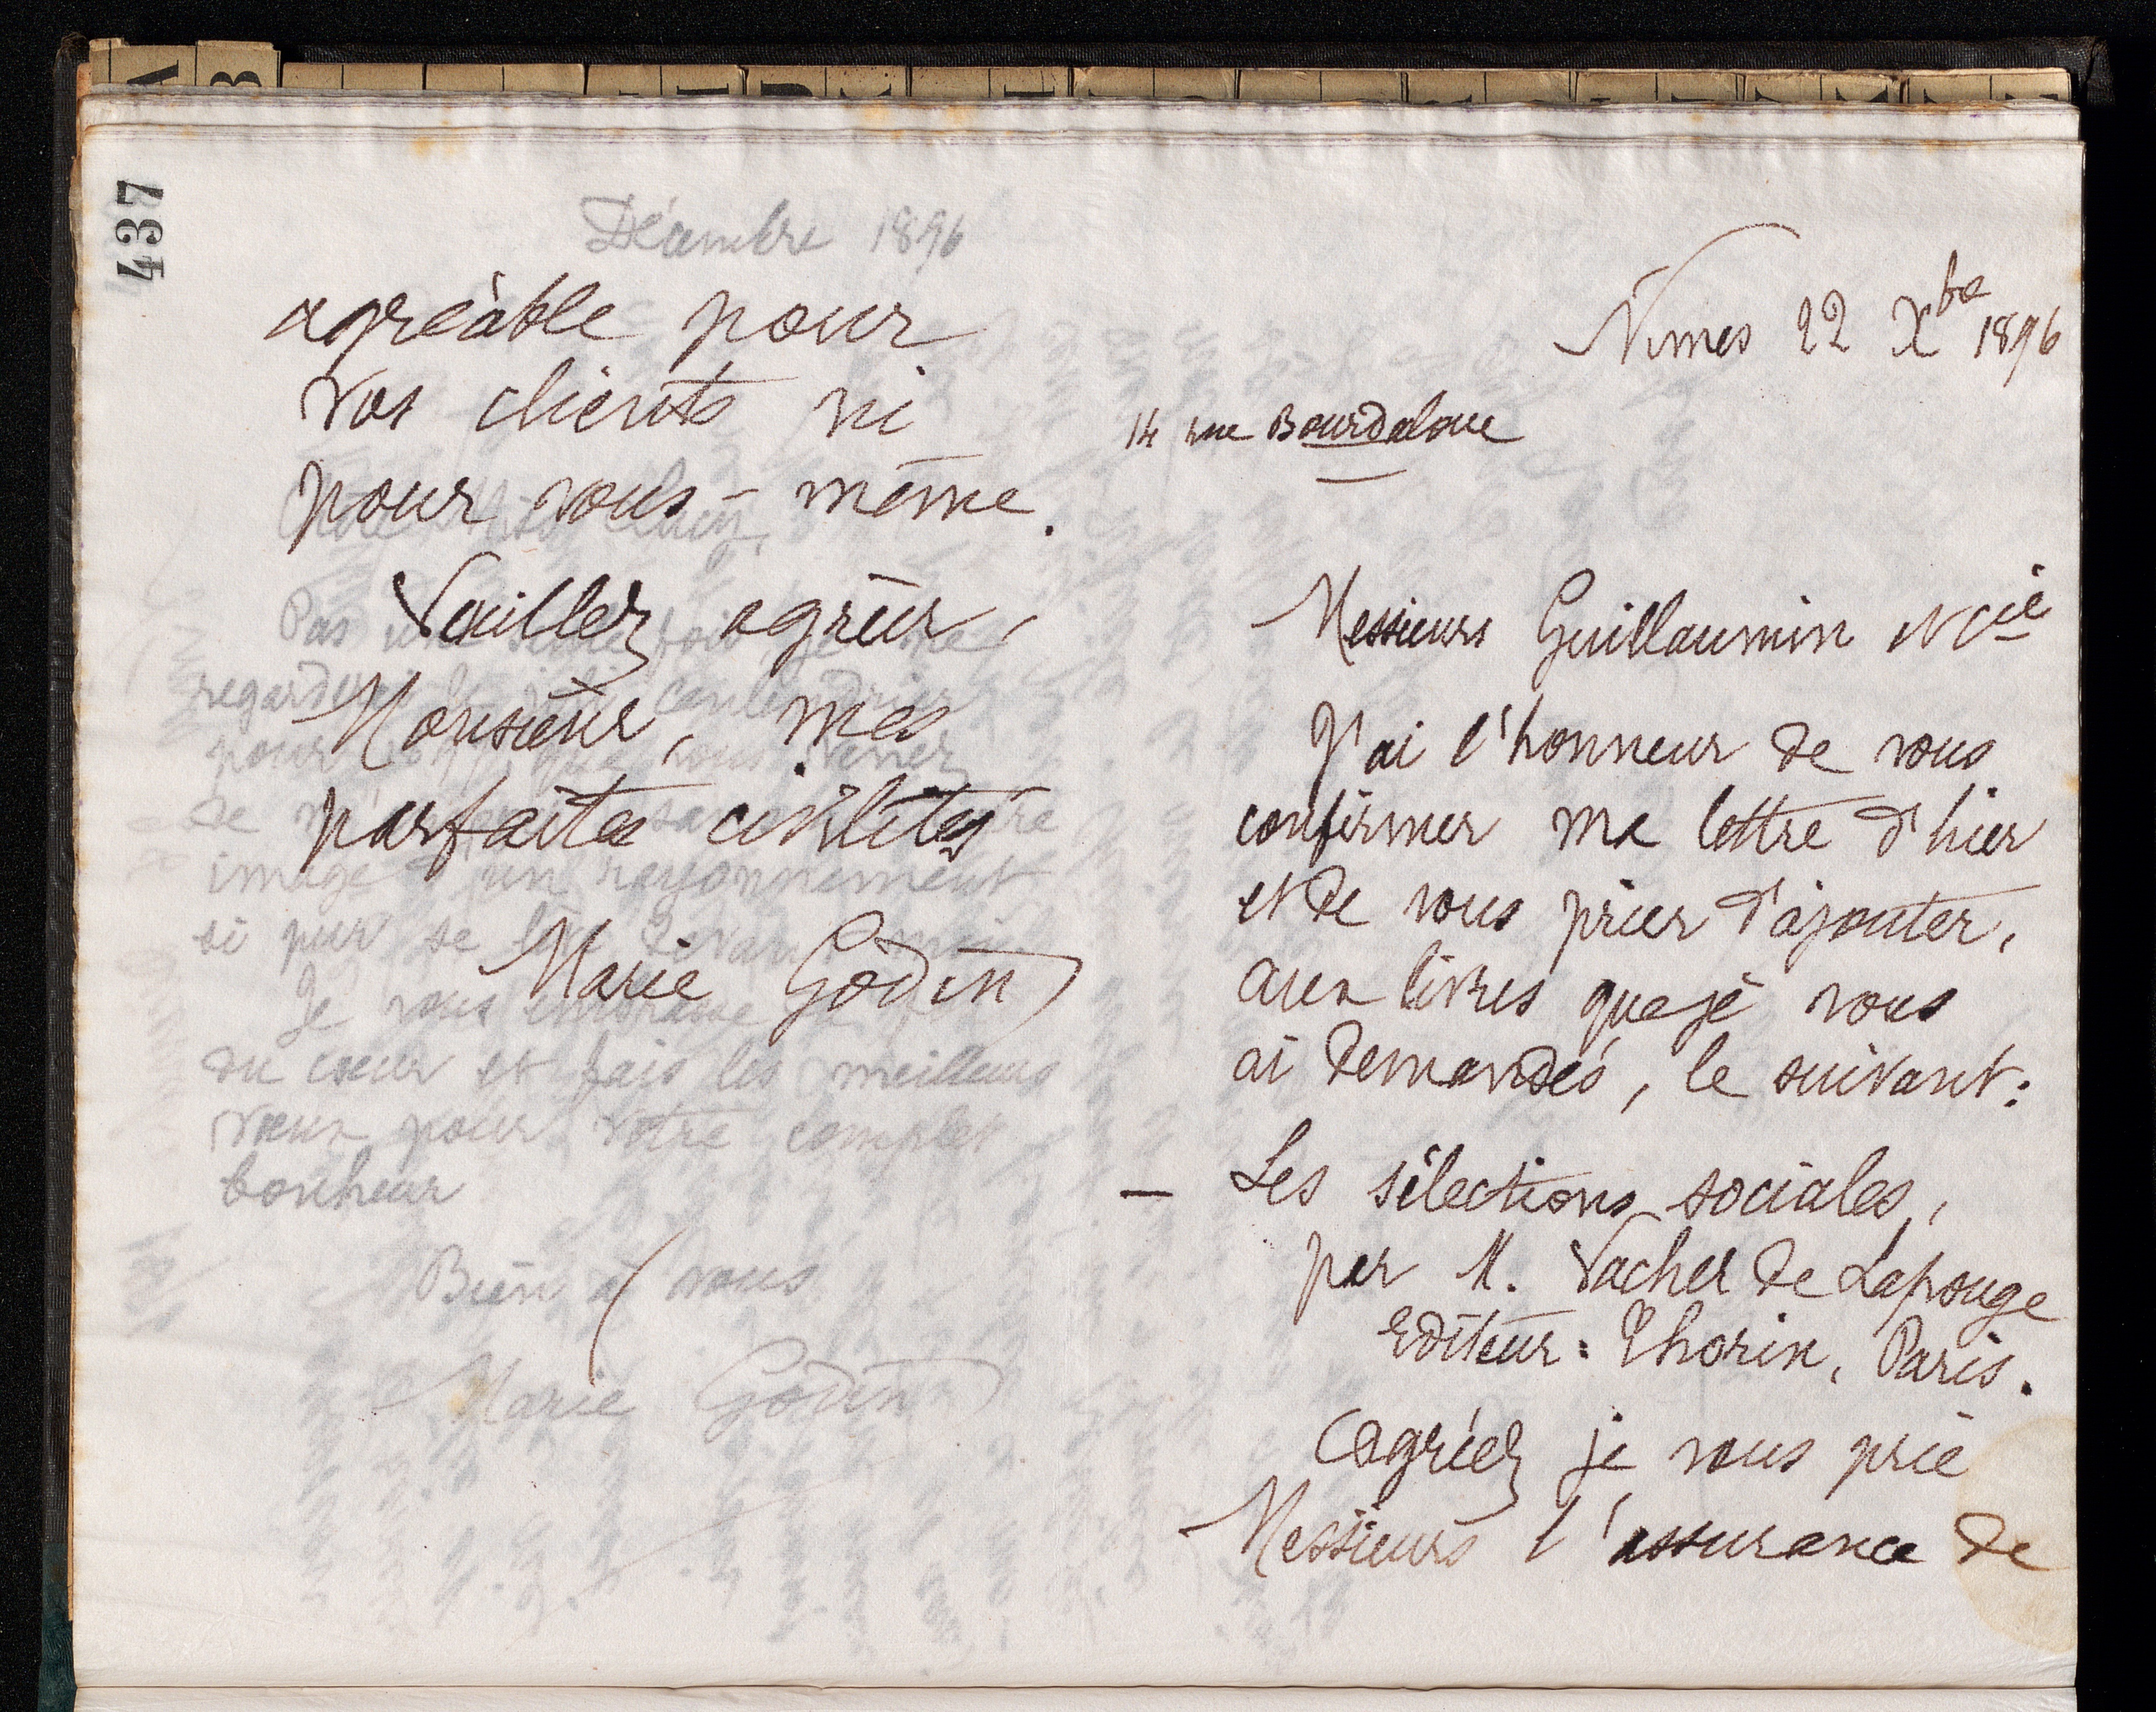 437
agréable pour
vos clients ni
pour vous-même.
Veuillez agréer,
Monsieur, mes
parfaites civilités
Marie Godin
Nimes 22 Xbre 1896
14 rue Bourdaloue
Messieurs Guillaumin et Cie
J'ai l'honneur de vous
confirmer ma lettre d'hier
et de vous prier d'ajouter,
aux livres que je vous
ai demandés, le suivant:
— Les sélections sociales,
par M. Vacher de Lapouge
Editeur: Thorin, Paris.
Agréez je vous prie
Messieurs l'assurance de
Décembre 1896
Pas une seule fois je ne
regarderai le joli calendrier
pour
de
image d'un rayonnement
si pur se
Je vous embrasse
du cœur et fais les meilleurs
vœux pour votre complet
bonheur
Bien à vous
Marie Godin